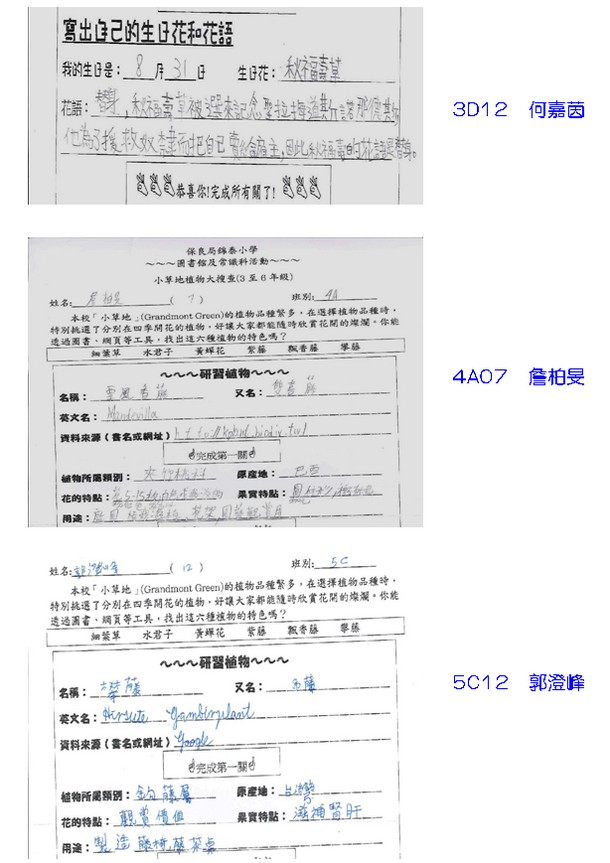 寫出自己的生日花和花語
我的生日是： 8 月 31 日 生日花： 秋福壽草
花語：替身，秋福壽草被選來紀念聖拉梅道其分諾那德其如
他為了援救奴隸而把自己賣給僱主,因此秋福壽的花語是替身。
恭喜你!完成所有關了!
3D12 何嘉茵
保良局錦泰小學
～～～圖書館及常識科活動～～～
小草地植物大搜查(3至6年級)
姓名： 詹柏旻 ( 7 ) 班別： 4A
本校「小草地」(Grandmont Green)的植物品種繁多，在選擇植物品種時，
特別挑選了分別在四季開花的植物，好讓大家都能隨時欣賞花開的燦爛。你能
透過圖書、網頁等工具，找出這六種植物的特色嗎？
細葉草 水君子 黃蟬花 紫藤 飄香藤 攀藤
～～～研習植物～～～
名稱： 香藤 又名： 雙喜藤
英文名： Mandevilla
資料來源（書名或網址）
完成第一關
植物所屬類別： 夾竹桃科 原產地： 巴西
花的特點： 果實特點：
用途：
4A07 詹柏旻
姓名: 郭澄峰 ( 12 ) 班別: 5C
本校「小草地」(Grandmont Green)的植物品種繁多，在選擇植物品種時，
特別挑選了分別在四季開花的植物，好讓大家都能隨時欣賞花開的燦爛。你能
透過圖書、網頁等工具，找出這六種植物的特色嗎？
細葉草 水君子 黃蟬花 紫藤 飄香藤 攀藤
～～～研習植物～～～
名稱： 攀藤 又名： 藤
英文名： Hirsute Gambirplant
資料來源（書名或網址） Google
完成第一關
植物所屬類別： 鉤藤屬 原產地： 台灣
花的特點： 觀賞價值 果實特點： 滋補腎肝
用途： 製造藤椅,藤菜桌
5C12 郭澄峰